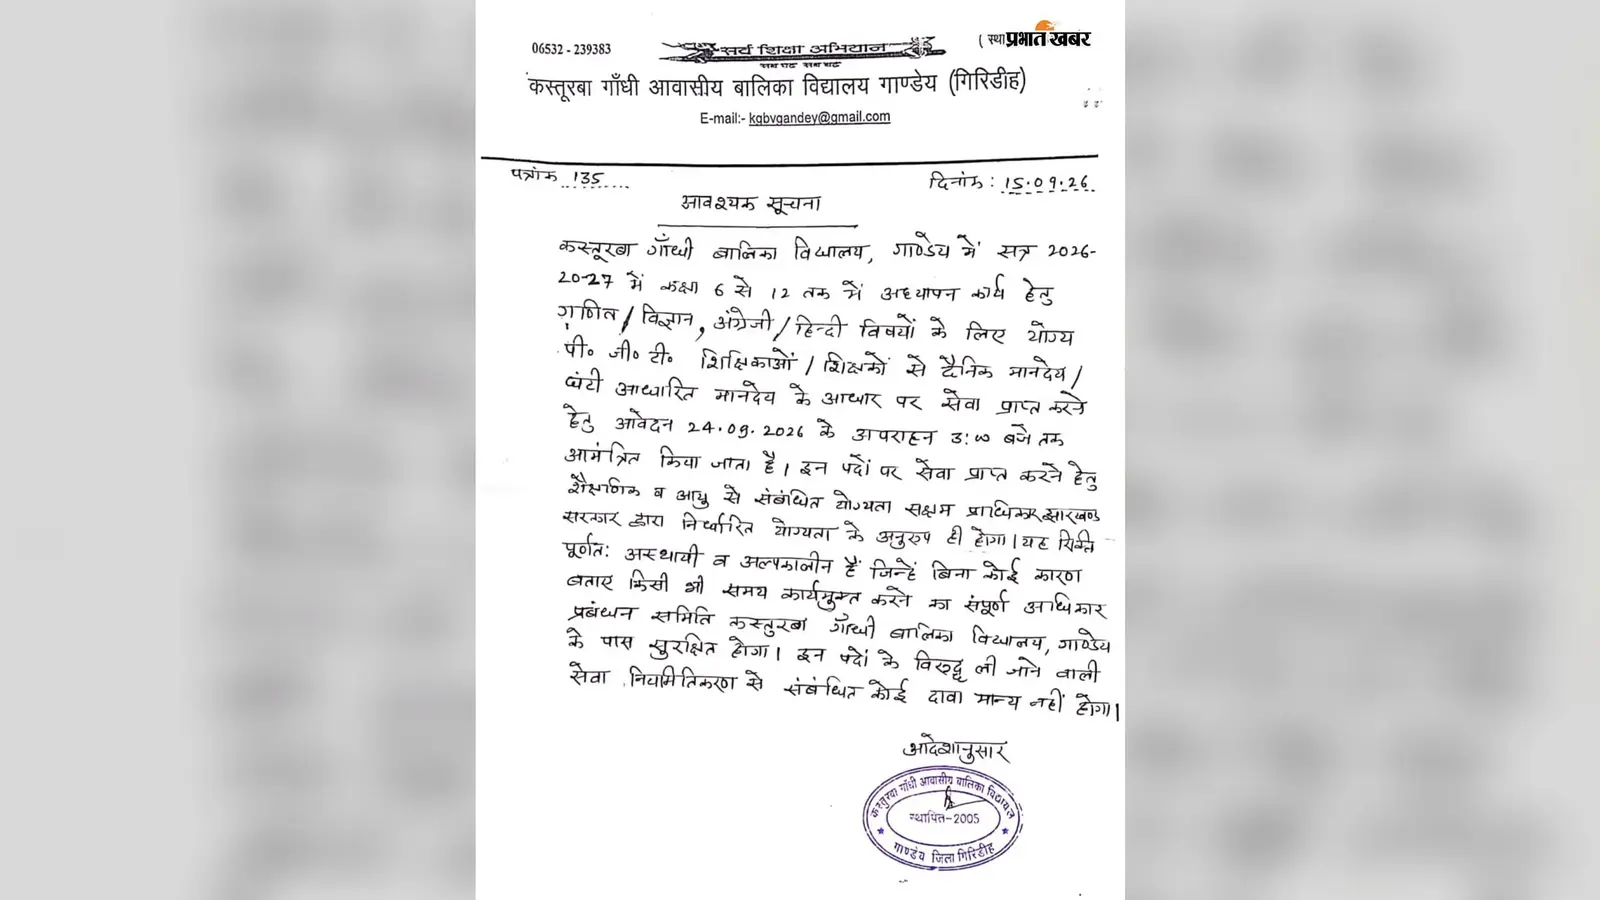 06532 - 239383
सर्व शिक्षा अभियान
सब पढ़ें सब बढ़ें
( स्था
प्रभात खबर
कस्तूरबा गाँधी आवासीय बालिका विद्यालय गाण्डेय (गिरिडीह)
E-mail:- kgbvgandey@gmail.com
पत्रांक 135
दिनांक : 15.09.26
आवश्यक सूचना
कस्तूरबा गाँधी बालिका विद्यालय, गाण्डेय में सत्र 2026-
20-27 में कक्षा 6 से 12 तक में अध्यापन कार्य हेतु
गणित / विज्ञान, अंग्रेजी / हिन्दी विषयों के लिए योग्य
पी० जी० टी० शिक्षिकाओं / शिक्षकों से दैनिक मानदेय /
घंटी आधारित मानदेय के आधार पर सेवा प्राप्त करने
हेतु आवेदन 24.09.2026 के अपराहन 3:00 बजे तक
आमंत्रित किया जाता है। इन पदों पर सेवा प्राप्त करने हेतु
शैक्षणिक व आयु से संबंधित योग्यता सक्षम प्राधिकार झारखण्ड
सरकार द्वारा निर्धारित योग्यता के अनुरुप ही होगा। यह रिक्ति
पूर्णत: अस्थायी व अल्पकालीन हैं जिन्हें बिना कोई कारण
बताए किसी भी समय कार्यमुक्त करने का संपूर्ण अधिकार
प्रबंधन समिति कस्तुरबा गाँधी बालिका विद्यालय, गाण्डेय
के पास सुरक्षित होगा। इन पदों के विरुद्ध ली जाने वाली
सेवा नियमितिकरण से संबंधित कोई दावा मान्य नहीं होगा।
आदेशानुसार
कस्तुरबा गाँधी आवासीय बालिका विद्यालय
स्थापित-2005
गाण्डेय जिला गिरिडीह